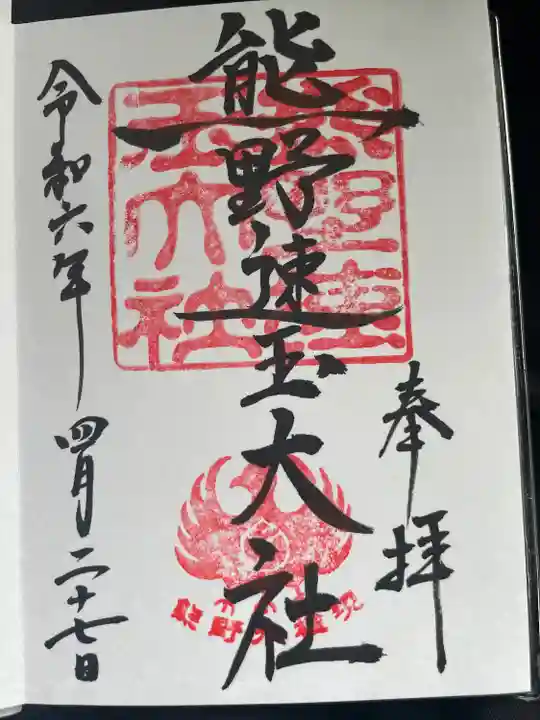 奉拝
熊野速玉大社
令和六年 四月二十七日
熊野速玉大社
熊野大権現